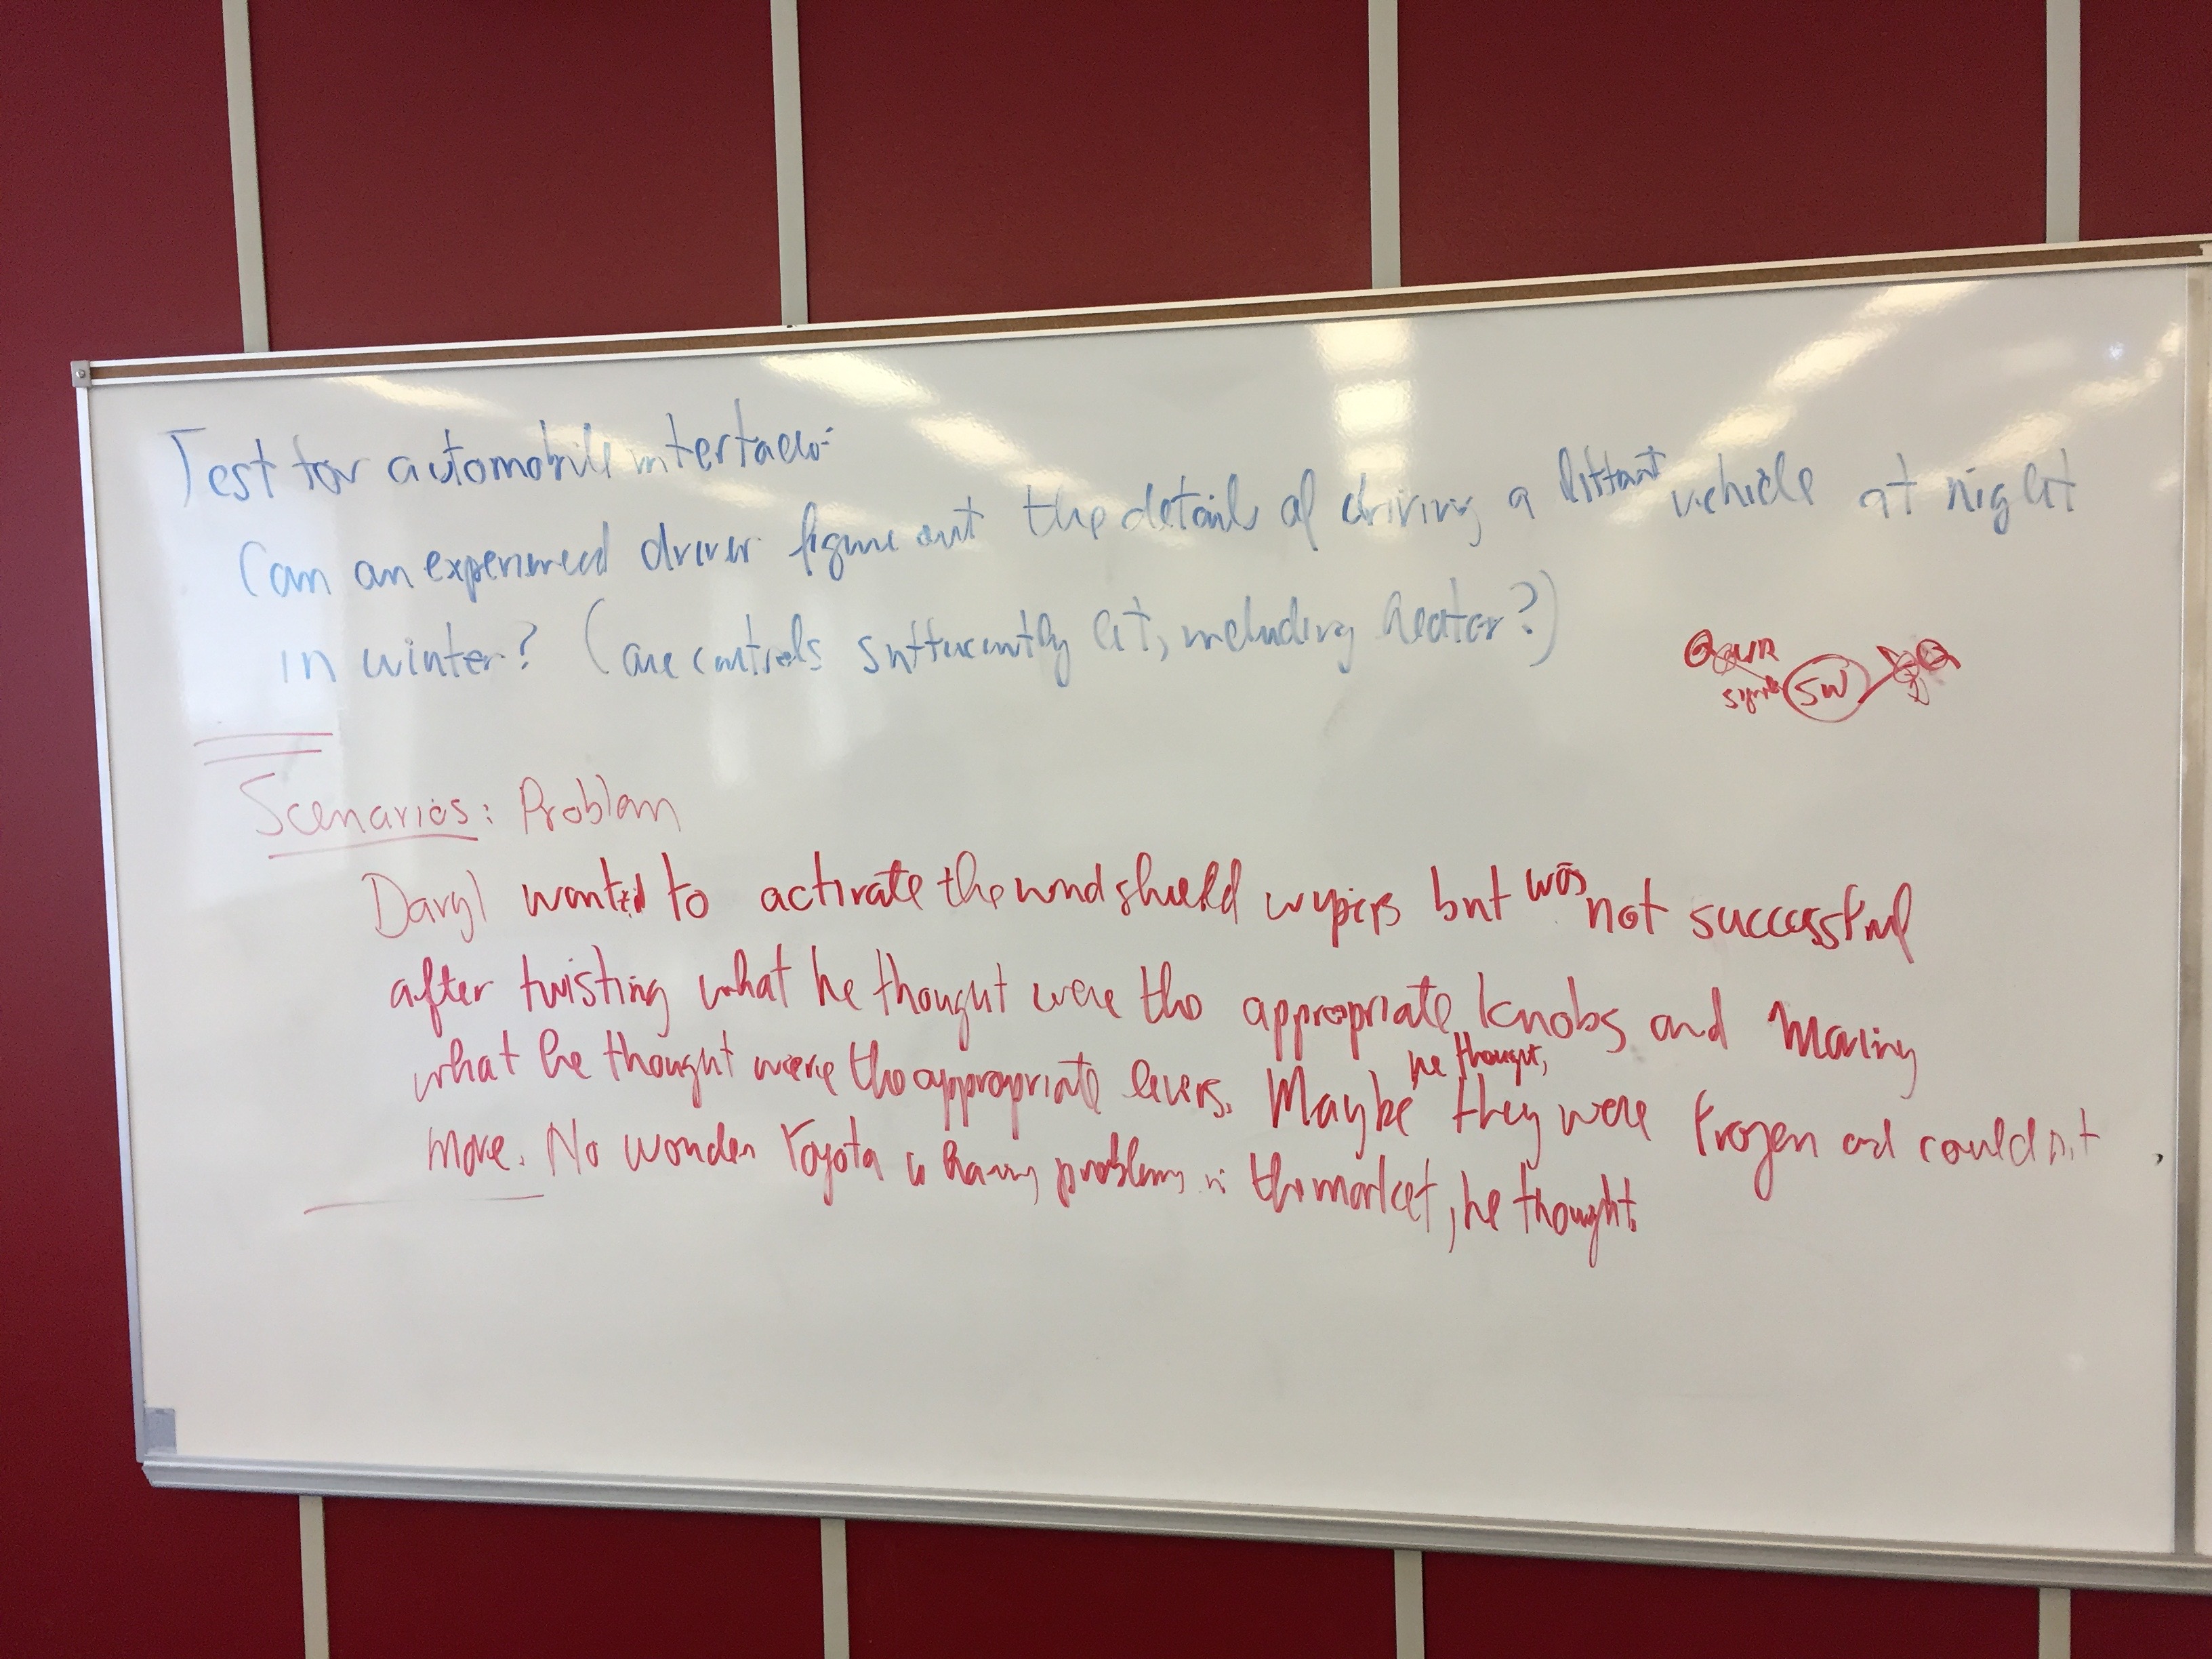 Test for automobile interface:
Can an experienced driver figure out the details of driving a vehicle at night
in winter? (are controls sufficiently lit, including heater?)
SW
Scenarios: Problem
Daryl wanted to activate the windshield wypers but was not successful
after twisting what he thought were the appropriate knobs and moving
what he thought were the appropriate levers. Maybe he thought, they were frozen and couldn't
move. No wonder Toyota is having problems in the market, he thought.